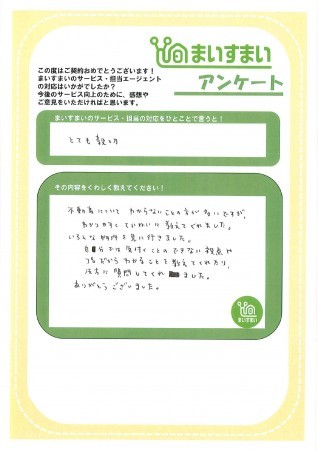 まいすまい
アンケート
この度はご契約おめでとうございます!
まいすまいのサービス・担当エージェント
の対応はいかがでしたか?
今後のサービス向上のために、感想や
ご意見をいただければと思います。
まいすまいのサービス・担当の対応をひとことで言うと!
とても親切
その内容をくわしく教えてください!
不動産について わからないことの方が多いですが、
わかりやすく ていねいに 教えてくれました。
いろんな物件を見に行きました。
自分では気付くことのできない視点や
プロだからわかることを教えてくれたり、
に質問してくれ ました。
ありがとうございました。
まいすまい